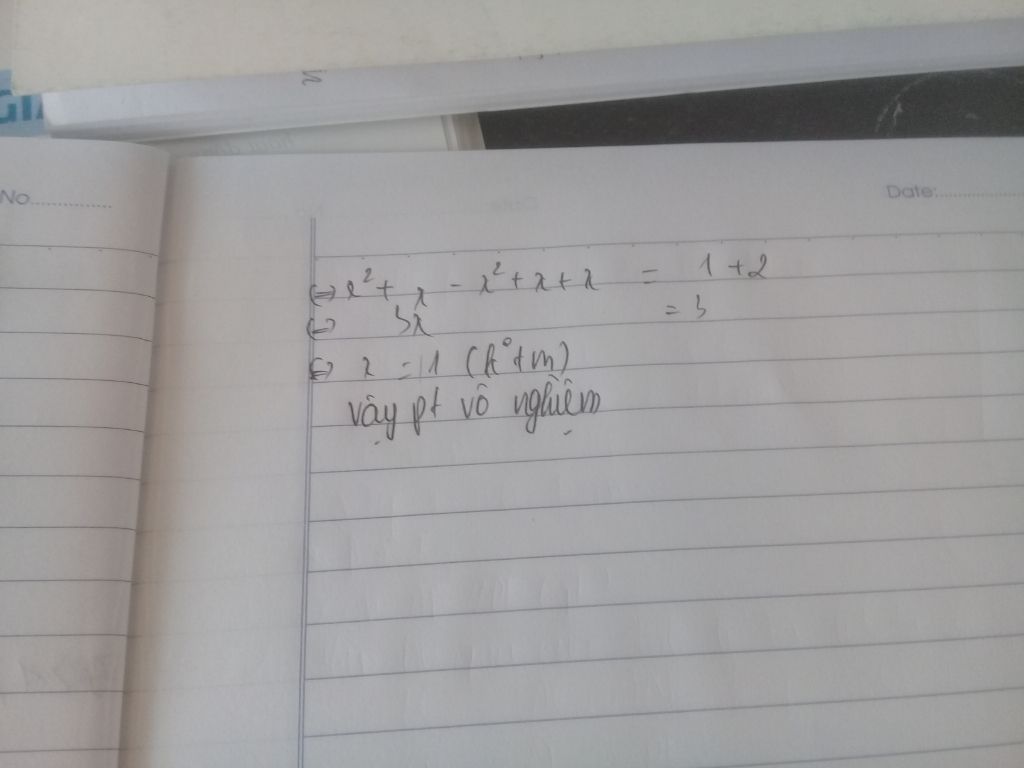 No...............
Date:...............
⇔ x² + x - x² + x + x = 1 + 2
⇔ 3x = 3
⇔ x = 1 (k° t m)
vậy pt vô nghiệm